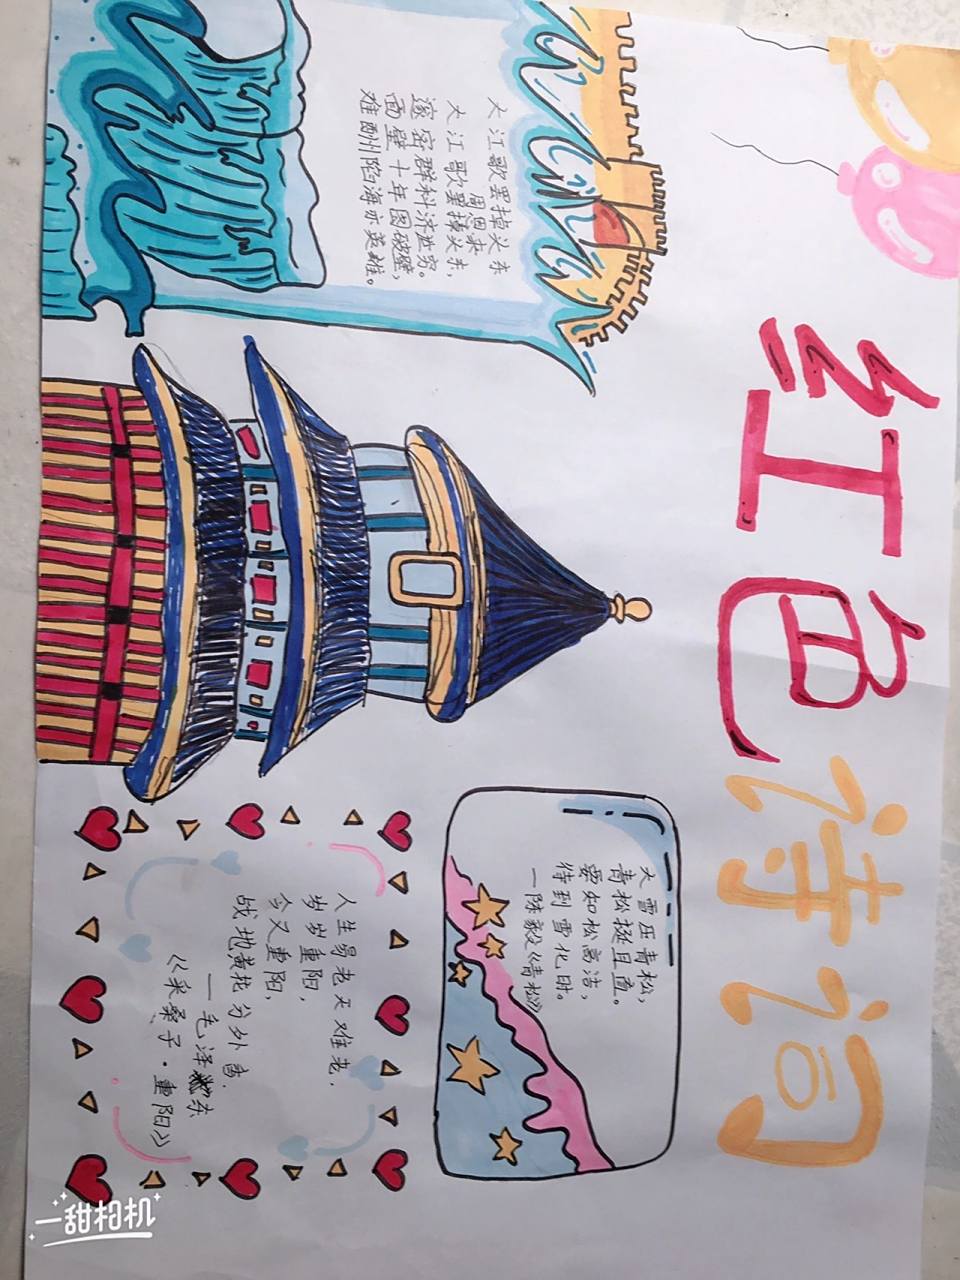 红色诗词
大江歌罢掉头东
周恩来
大江歌罢掉头东，
邃密群科济世穷。
面壁十年图破壁，
难酬蹈海亦英雄。
大雪压青松，
青松挺且直。
要知松高洁，
待到雪化时。
一陈毅《青松》
人生易老天难老，
岁岁重阳，
今又重阳，
战地黄花分外香.
一毛泽东
《采桑子·重阳》
一甜相机